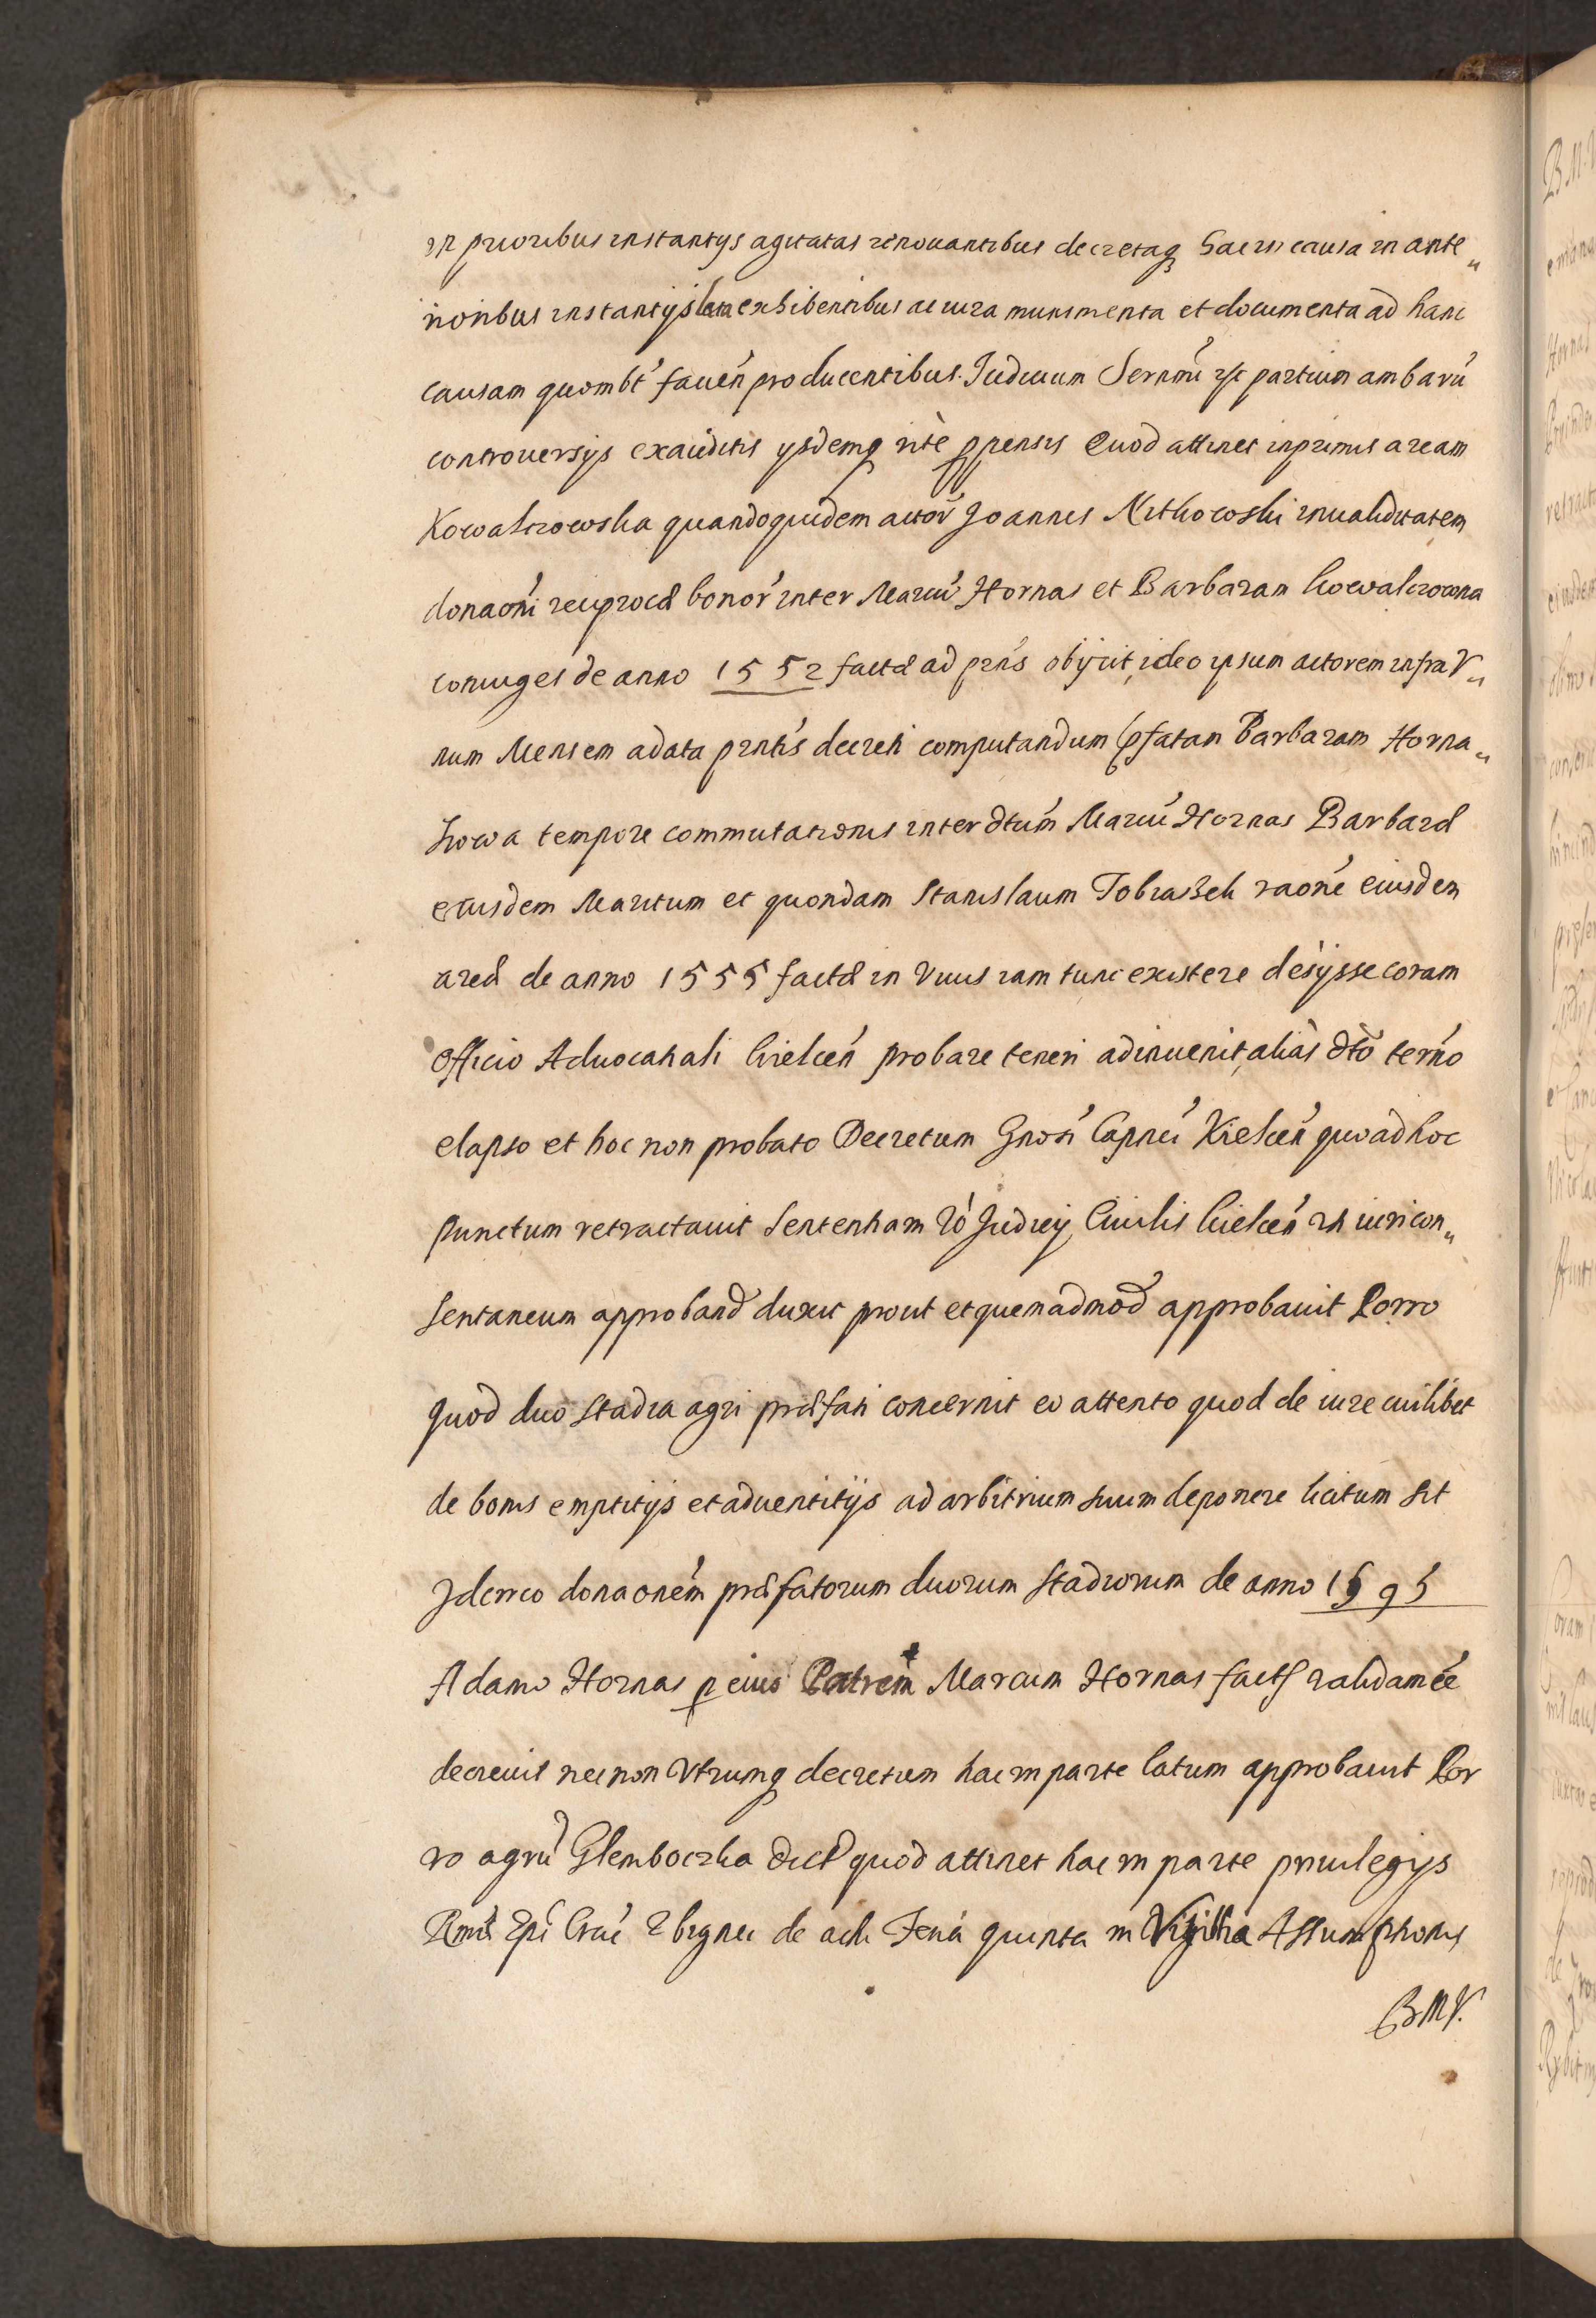 in prioribus instantys agitatas renouantibus decretaq hac in causa in ante„
rioribus instantijs lata exhibentibus ac iura munimenta et documenta ad hanc
causam quombt fauen producentibus. Iudicium Sernmi est partium ambaru
controuersys exauditis ysdemq rite ppensis Quod attinet inprimis aream
Kowalczowska quandoquidem actor Joannes Nitkowski inualiditatem
donaoni reciprocæ bonor inter Marcu Hornas et Barbaram Kowalczowna
coniuges de anno 1552 factæ ad prns obijcit, ideo ipsum actorem infra V„
num Mensem a data prntis decreti computandum pfatam Barbaram Horna„
howa tempore commutationis inter dtum Marcu Hornas Barbaræ
eiusdem Maritum et quondam Stanislaum Tobiaszek raone eiusdem
areæ de anno 1555 factæ in viuis iam tunc existere desijsse coram
Officio Aduocatiali Kielcen probare teneri adinuenit, alias dto termo
elapso et hoc non probato Decretum Gnosi Capnei Kielcen quo ad hoc
punctum retractauit Sententiam vo Judicij Ciuilis Kielcen uti iuri con„
sentaneum approband duxit prout et quemadmod approbauit Porro
quod duo stadia agri præfati concernit eo attento quod de iure cuilibet
de bonis emptitijs et aduentitijs ad arbitrium suum deponere licitum sit
Jdcirco donaonem præfatorum duorum stadiorum de anno 1595
Adamo Hornas p eius Patrem Marcum Hornas factæ validam ee
decreuit nec non Vtrumq decretum hac in parte latum approbauit Por
ro agru Glemboczka dict quod attinet hac in parte priuilegijs
Rmi Epi Crac Zbignei de Feria quinta in Vigilia Assumptionis
B M V.